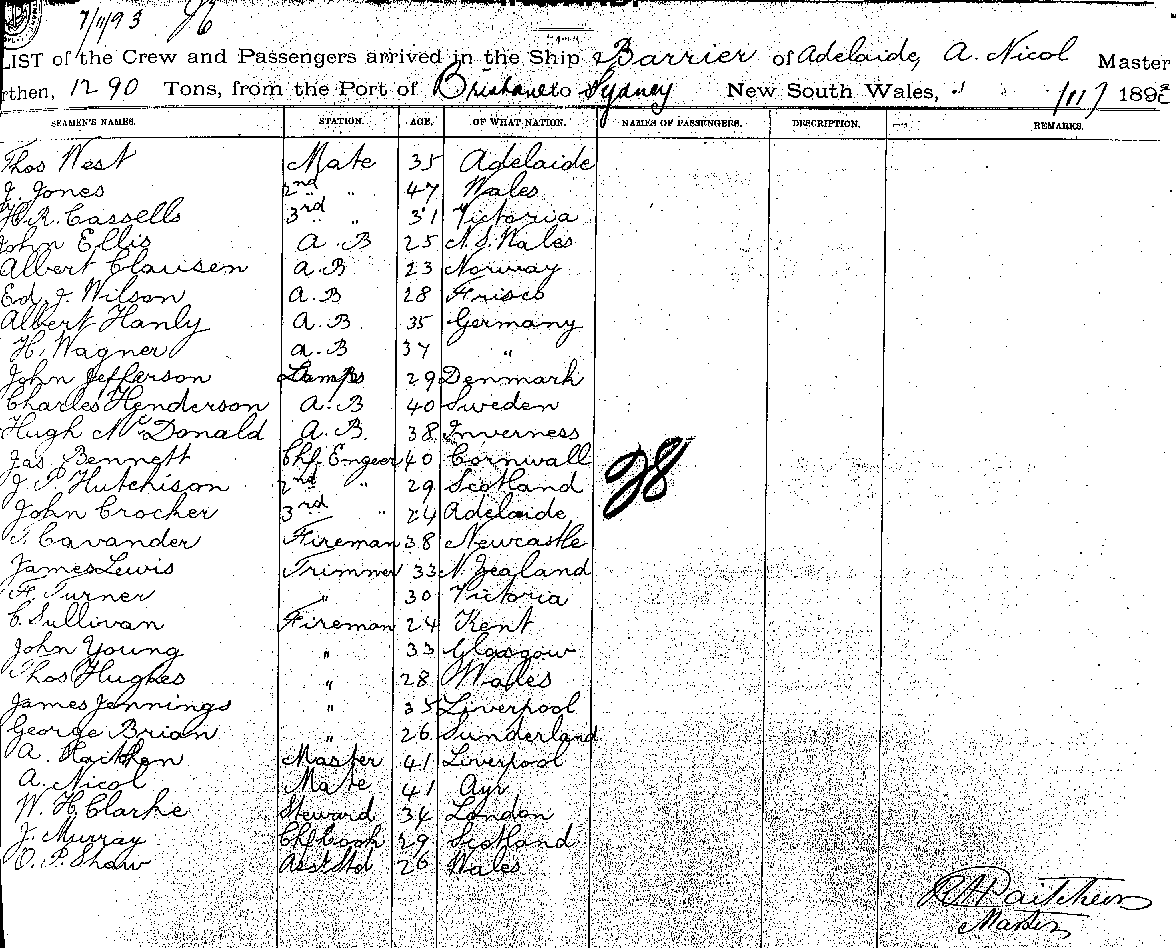 7/11/93
LIST of the Crew and Passengers arrived in the Ship Barrier of Adelaide, A. Nicol Master
rthen, 1290 Tons, from the Port of Brisbane to Sydney New South Wales, 1/11/ 1893
SEAMEN'S NAMES. STATION. AGE. OF WHAT NATION. NAMES OF PASSENGERS. DESCRIPTION. REMARKS.
Thos West Mate 35 Adelaide
J. Jones 2nd " 47 Wales
H.R. Cassells 3rd " 31 Victoria
John Ellis A.B 25 N.S. Wales
Albert Clausen A.B 23 Norway
Ed. J. Wilson A.B 28 Frisco
Albert Hanly A.B 35 Germany
H. Wagner A.B 37 "
John Jefferson Lamps 29 Denmark
Charles Henderson A.B 40 Sweden
Hugh McDonald A.B. 38 Inverness
Jas Bennett Chf. Engeer 40 Cornwall
J. P. Hutchison 2nd " 29 Scotland
John Crocher 3rd " 24 Adelaide
28
T. Cavander Fireman 38 Newcastle
James Lewis Trimmer 33 N. Zealand
F. Turner " 30 Victoria
C. Sullivan Fireman 24 Kent
John Young " 33 Glasgow
Thos Hughes " 28 Wales
James Jennings " 35 Liverpool
George Brian " 26 Sunderland
A. Master 41 Liverpool
A. Nicol Mate 41 Ayr
W. H. Clarke Steward 34 London
J. Murray Chf Cook 29 Scotland
O. P. Shaw Asst Std 26 Wales
Master